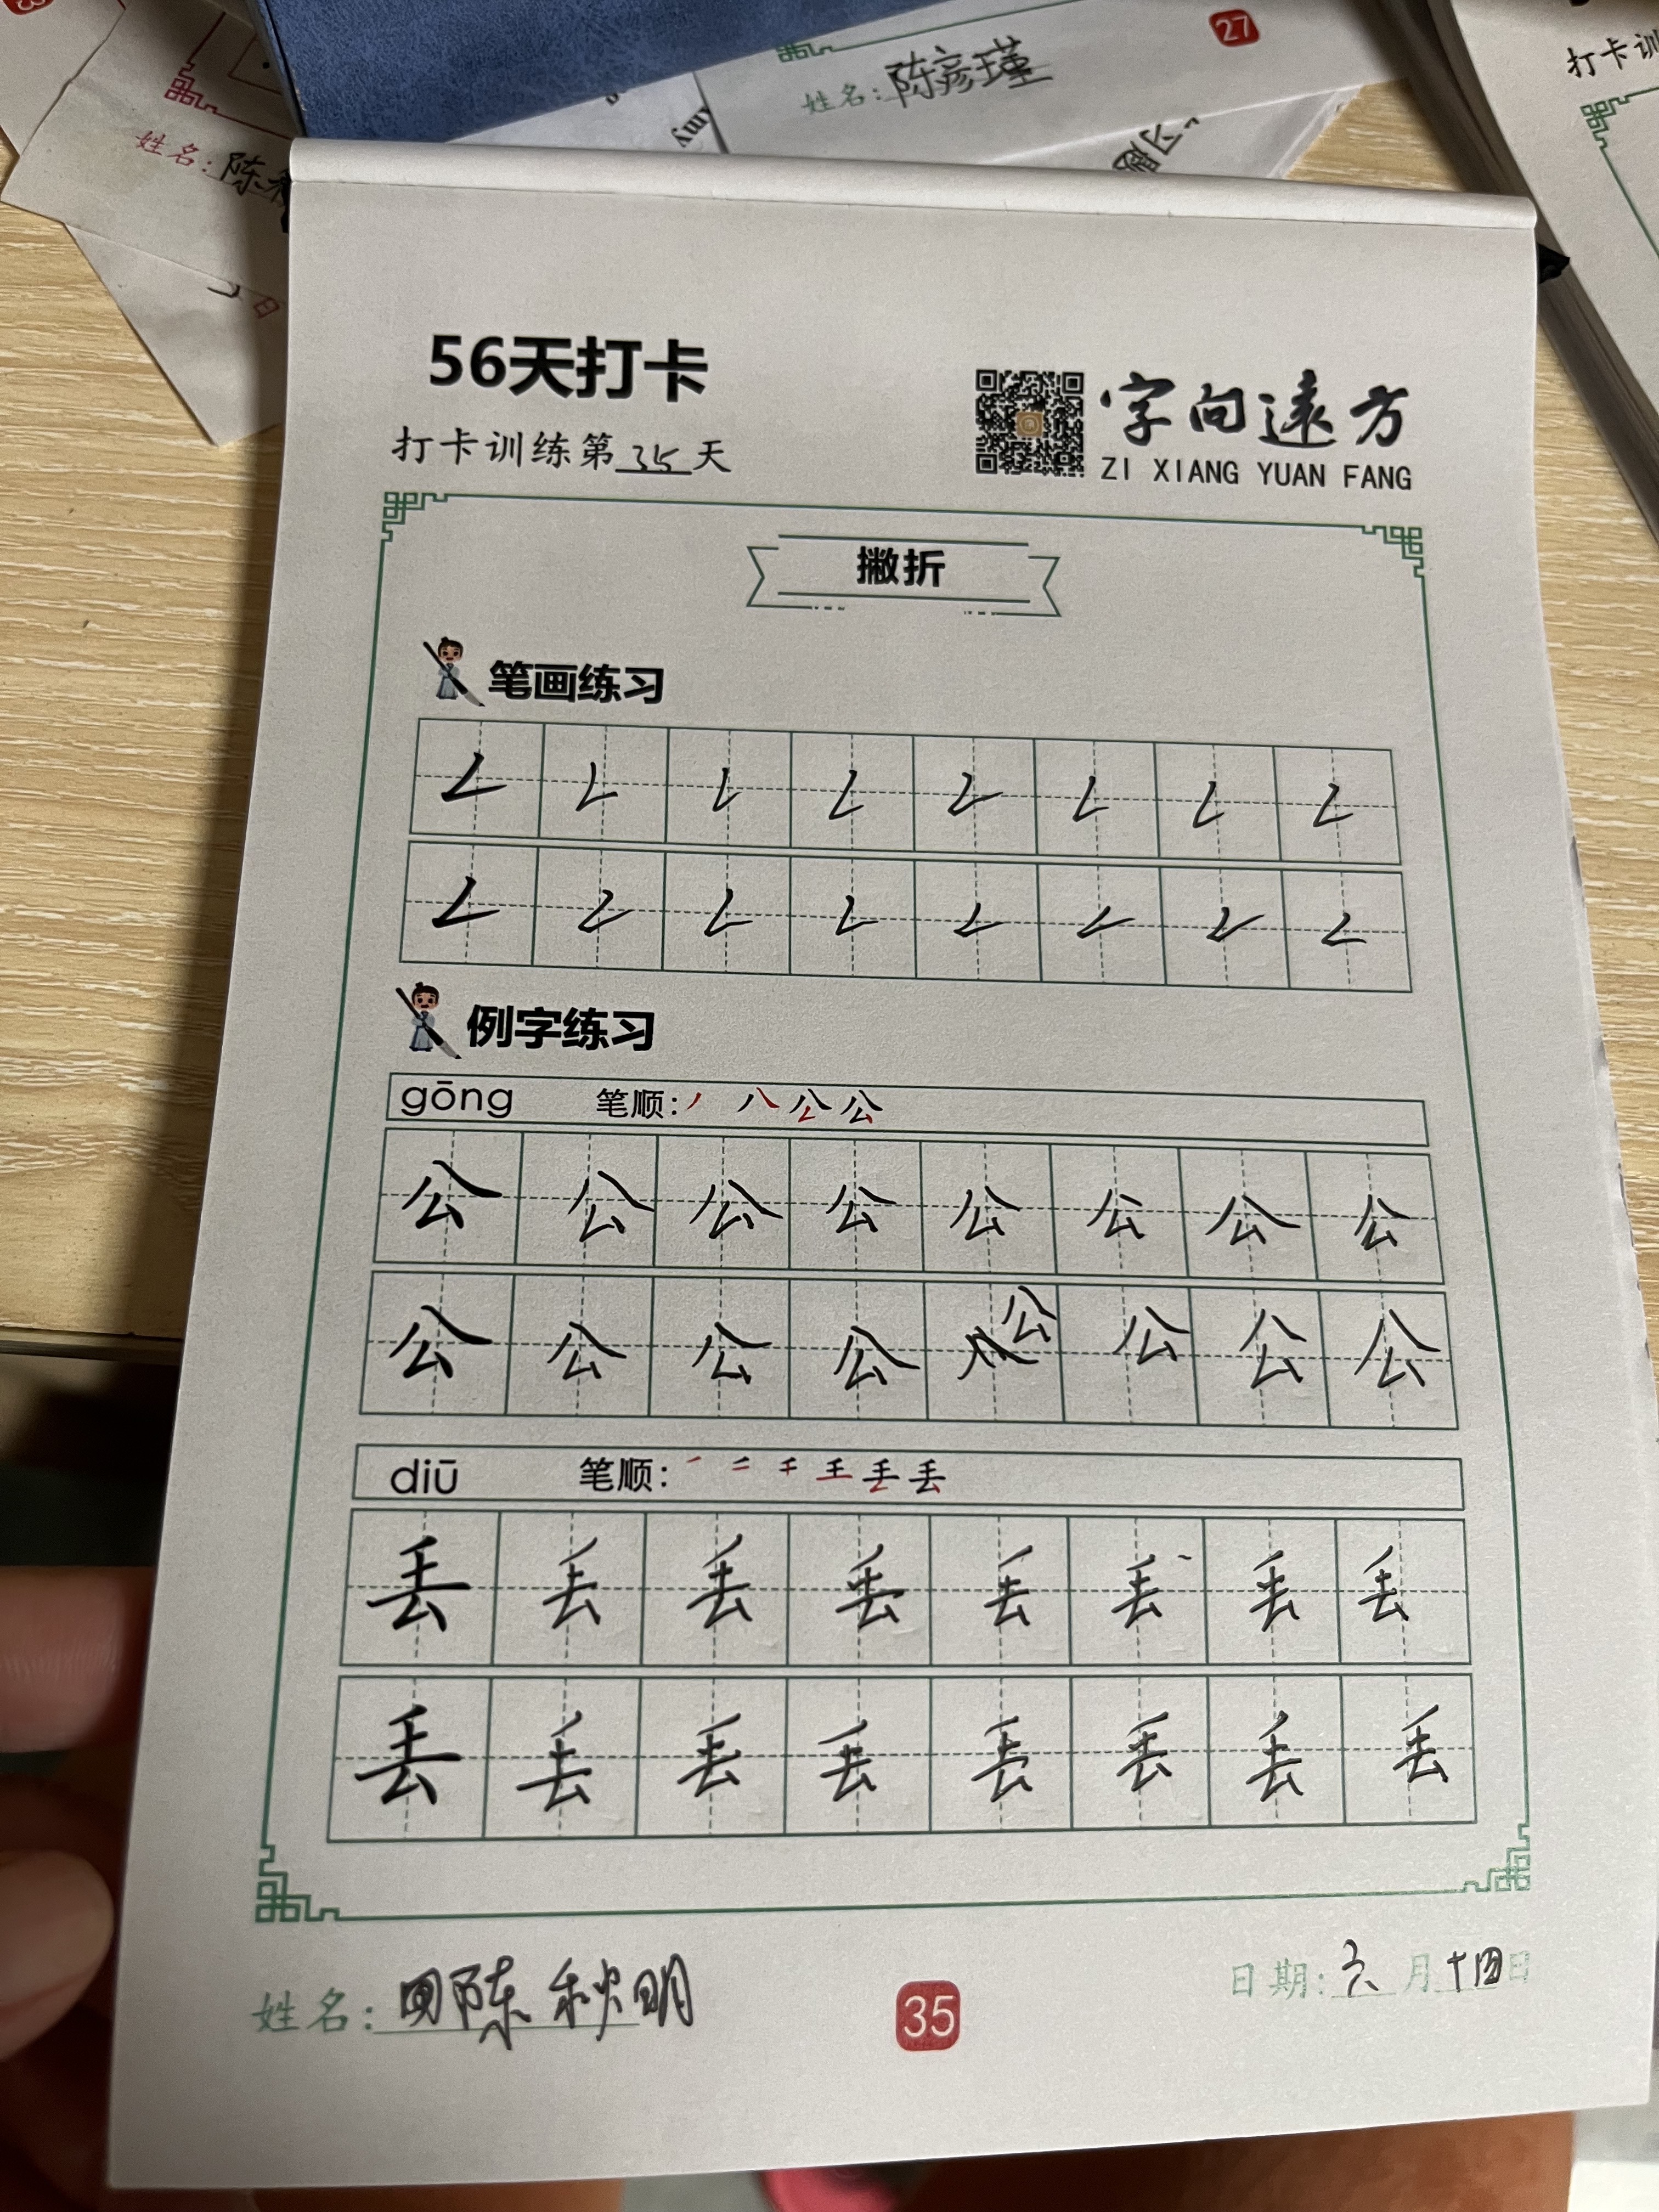 27
姓名:陈彦瑾
姓名:陈
日
my
习题
打卡训
56天打卡
打卡训练第35天
字向遠方
ZI XIANG YUAN FANG
撇折
笔画练习
例字练习
gōng 笔顺: 丿 八 公 公
公 公 公 公 公 公 公 公
公 公 公 公 公 公 公 公
diū 笔顺: 丢
丢 丢 丢 丢 丢 丢 丢 丢
丢 丢 丢 丢 丢 丢 丢 丢
姓名: 陈秋明
35
日期: 六月十四日